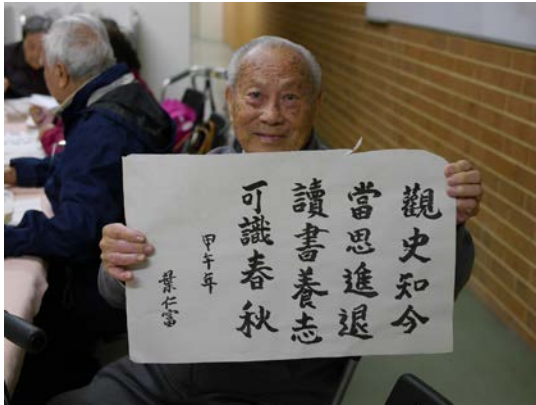 觀史知今
當思進退
讀書養志
可識春秋
甲午年
葉仁富